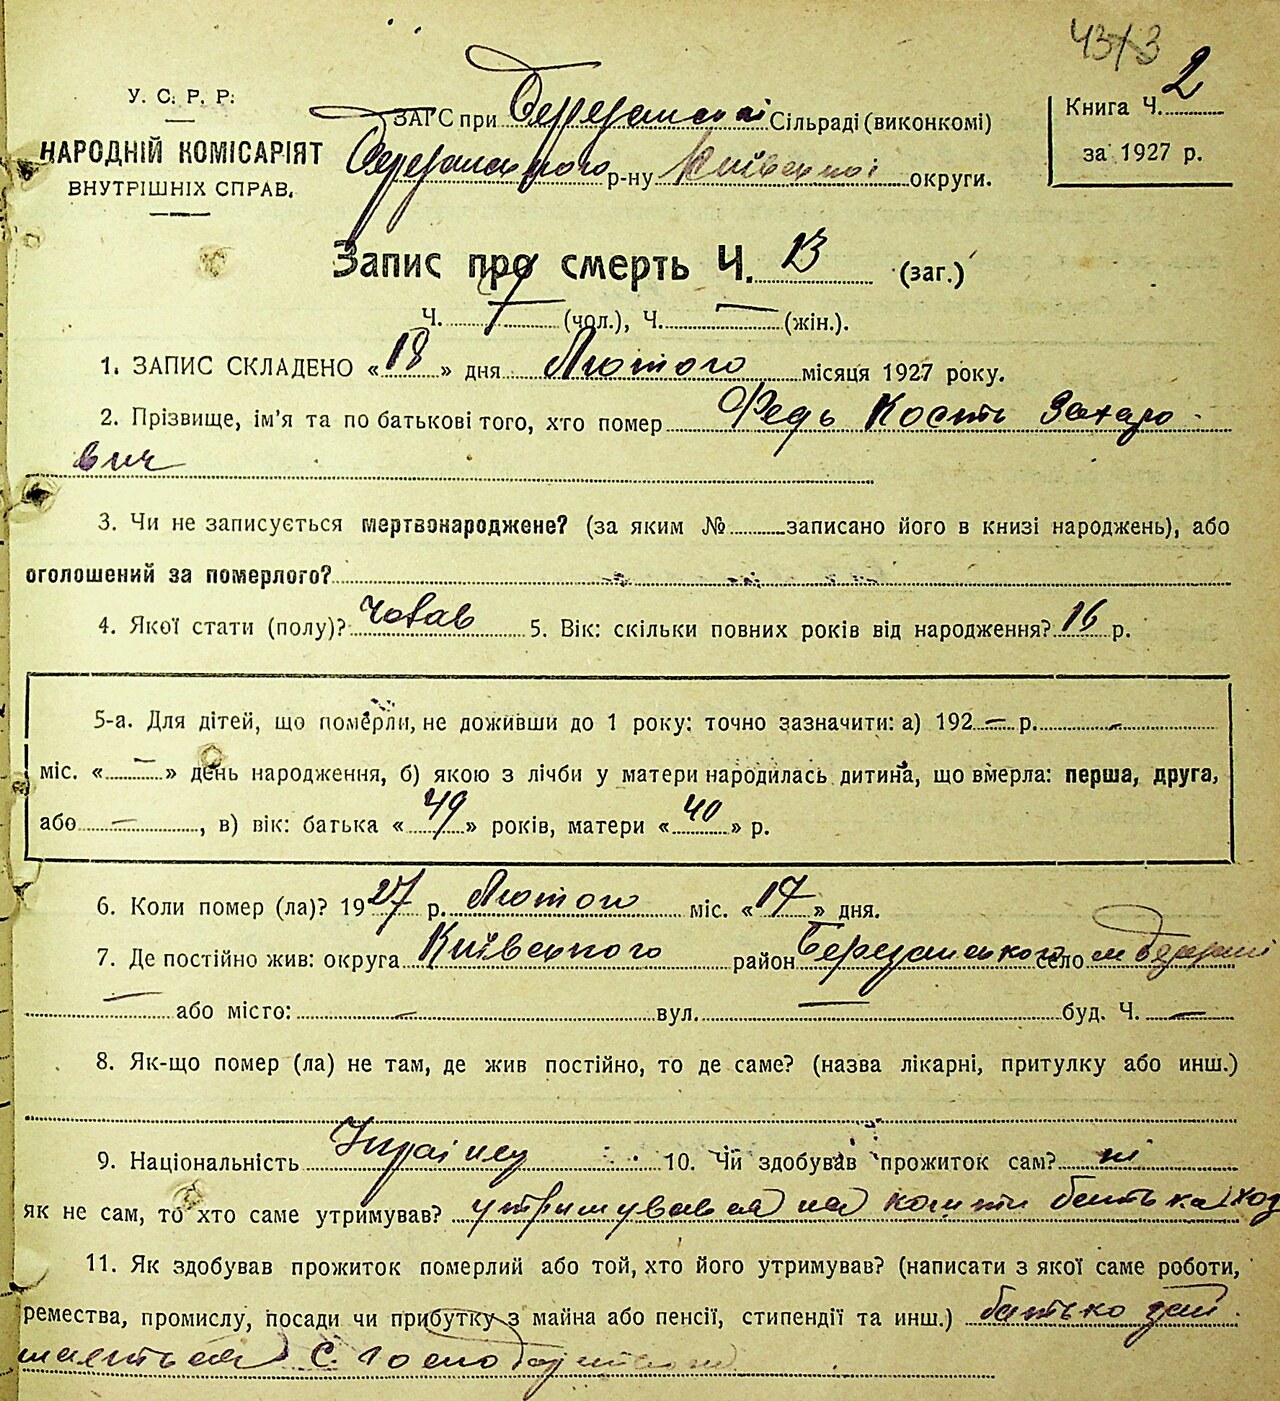 43/3
У. С. Р. Р.
НАРОДНІЙ КОМІСАРІЯТ
ВНУТРІШНІХ СПРАВ.
ЗАГС при Березанській Сільраді (виконкомі)
Березанського р-ну Київської округи.
Книга Ч. 2
за 1927 р.
Запис про смерть Ч. 13 (заг.)
Ч. 7 (чол.), Ч. — (жін.).
1. ЗАПИС СКЛАДЕНО « 18 » дня Лютого місяця 1927 року.
2. Прізвище, ім'я та по батькові того, хто помер Федь Кость Захаро
вич
3. Чи не записується мертвонароджене? (за яким № записано його в книзі народжень), або
оголошений за померлого?
4. Якої стати (полу)? 5. Вік: скільки повних років від народження? 16 р.
5-а. Для дітей, що померли, не доживши до 1 року: точно зазначити: а) 192 — р. -
міс. « — » день народження, б) якою з лічби у матери народилась дитина, що вмерла: перша, друга,
або — , в) вік: батька « 49 » років, матери « 40 » р.
6. Коли помер (ла)? 1927 р. Лютого міс. « 17 » дня.
7. Де постійно жив: округа Київського район Березанського село м Березані
— або місто: — вул. — буд. Ч. —
8. Як-що помер (ла) не там, де жив постійно, то де саме? (назва лікарні, притулку або инш.)
9. Національність 10. Чи здобував прожиток сам? ні
як не сам, то хто саме утримував? утримувався на кошти батька
11. Як здобував прожиток померлий або той, хто його утримував? (написати з якої саме роботи,
ремества, промислу, посади чи прибутку з майна або пенсії, стипендії та инш.) батько зай
мається С. Господарством